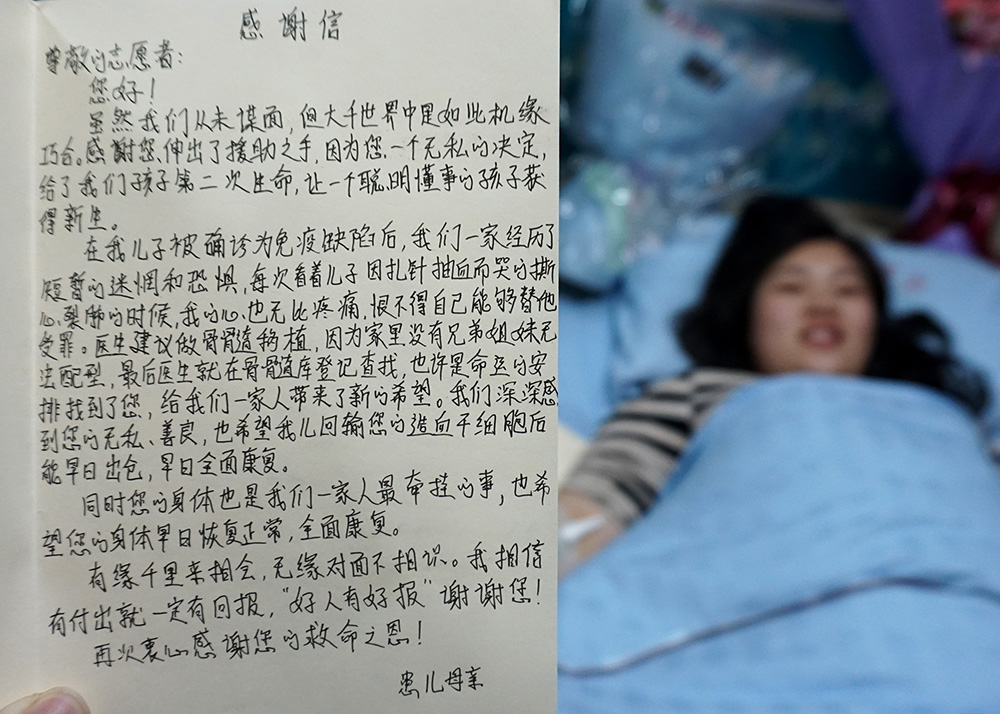 感谢信
尊敬的志愿者：
您好！
虽然我们从未谋面，但大千世界中是如此机缘
巧合。感谢您伸出了援助之手，因为您一个无私的决定，
给了我们孩子第二次生命，让一个聪明懂事的孩子获
得新生。
在我儿子被确诊为免疫缺陷后，我们一家经历了
短暂的迷惘和恐惧，每次看着儿子因扎针抽血而哭的撕
心裂肺的时候，我的心也无比疼痛，恨不得自己能够替他
受罪。医生建议做骨髓移植，因为家里没有兄弟姐妹无
法配型，最后医生就在骨髓库登记查找，也许是命运的安
排找到了您，给我们一家人带来了新的希望。我们深深感
到您的无私、善良，也希望我儿回输您的造血干细胞后
能早日出仓，早日全面康复。
同时您的身体也是我们一家人最牵挂的事，也希
望您的身体早日恢复正常，全面康复。
有缘千里来相会，无缘对面不相识。我相信
有付出就一定有回报，“好人有好报”谢谢您！
再次衷心感谢您的救命之恩！
患儿母亲